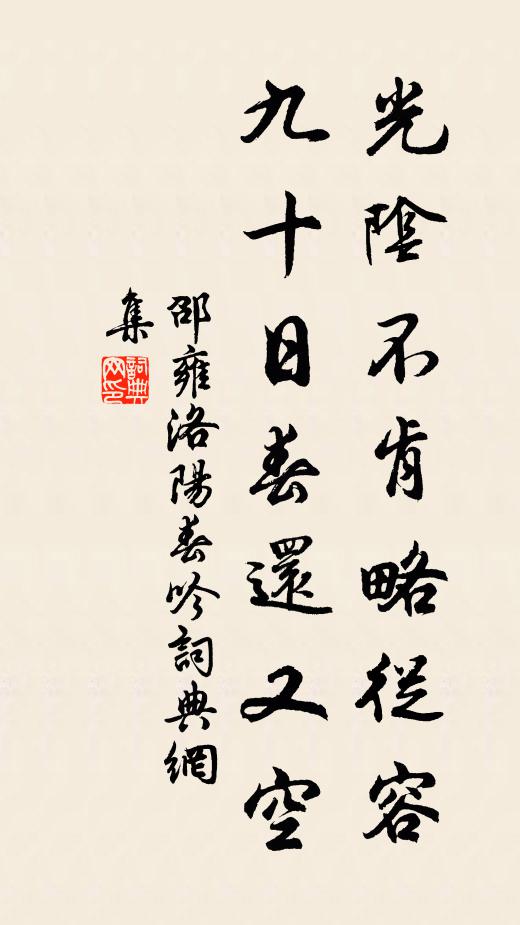 光陰不肯略從容
九十日春還又空
邵雍洛陽春吟詞典網
集
詞典
网印